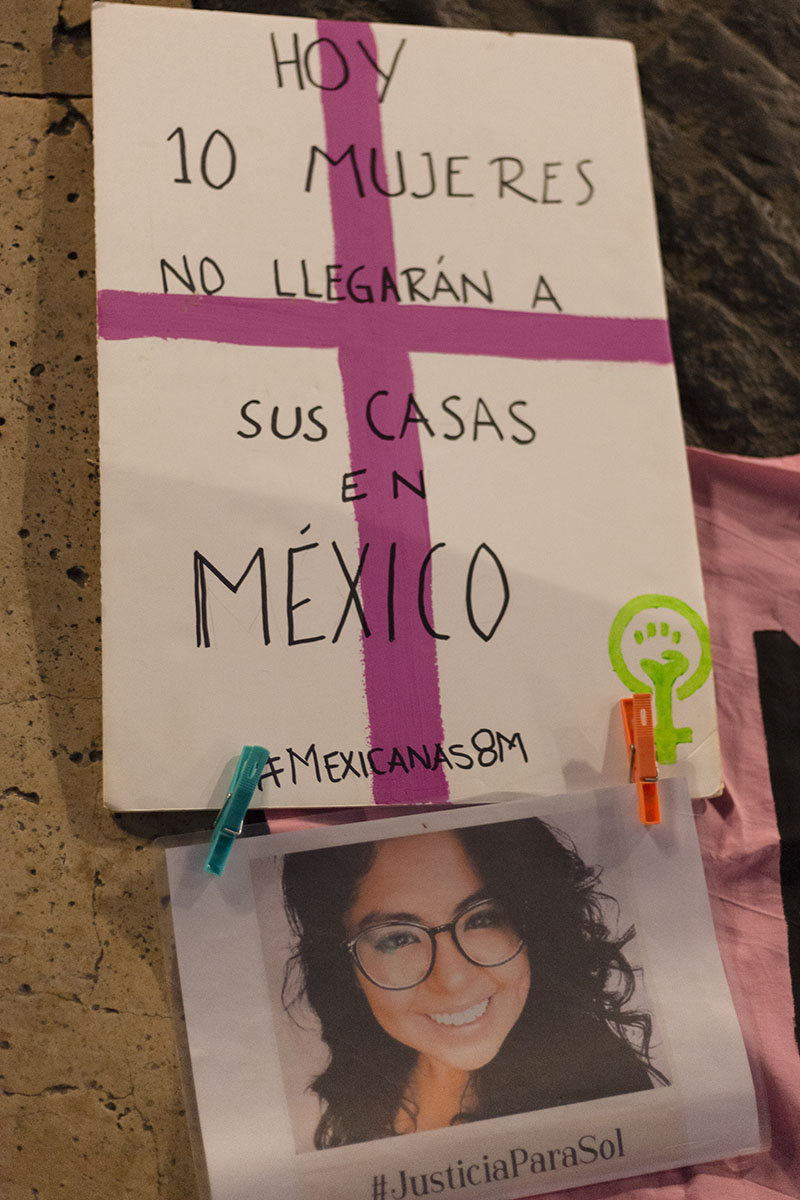 HOY
10 MUJERES
NO LLEGARÁN A
SUS CASAS
EN
MÉXICO
#MEXICANAS8M
#JusticiaParaSol